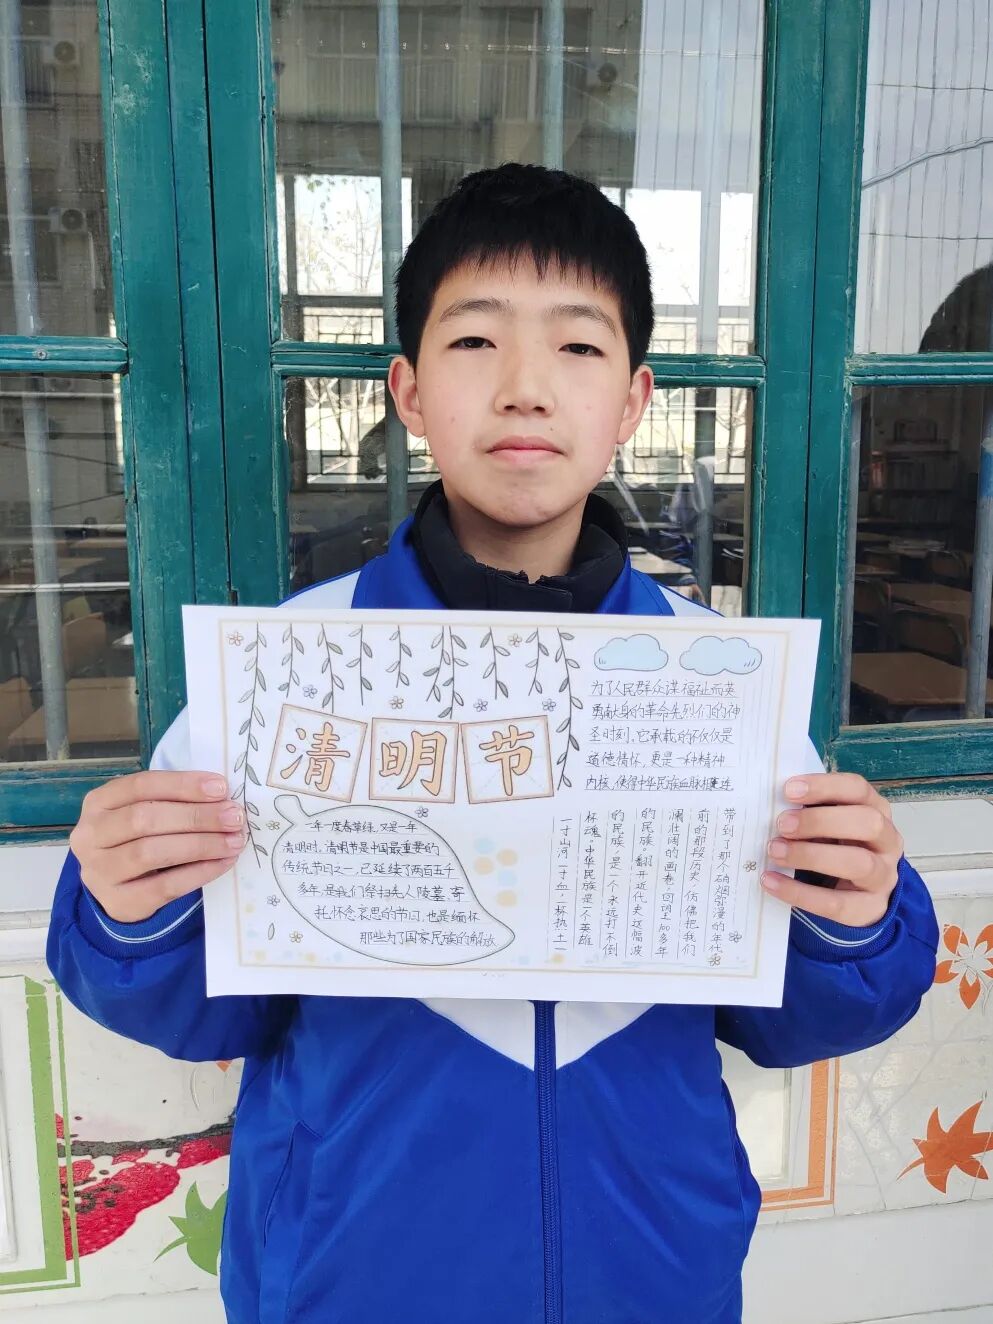 清明节
一年一度春草绿，又是一年
清明时，清明节是中国最重要的
传统节日之一，已延续了两百五千
多年，是我们祭扫先人陵墓，寄
托怀念哀思的节日，也是缅怀
那些为了国家民族的解放
为了人民群众谋福祉而英
勇献身的革命先烈们的神
圣时刻，它承载的不仅仅是
道德情怀，更是一种精神
内核，使得中华民族血脉相连
带到了那个硝烟弥漫的年代
前的那段历史，仿佛把我们
澜壮阔的画卷，回望100多年
的民族。翻开近代史这幅波
的民族，是一个永远打不倒
杯魂。中华民族是一个英雄
一寸山河一寸血，一杯热土一